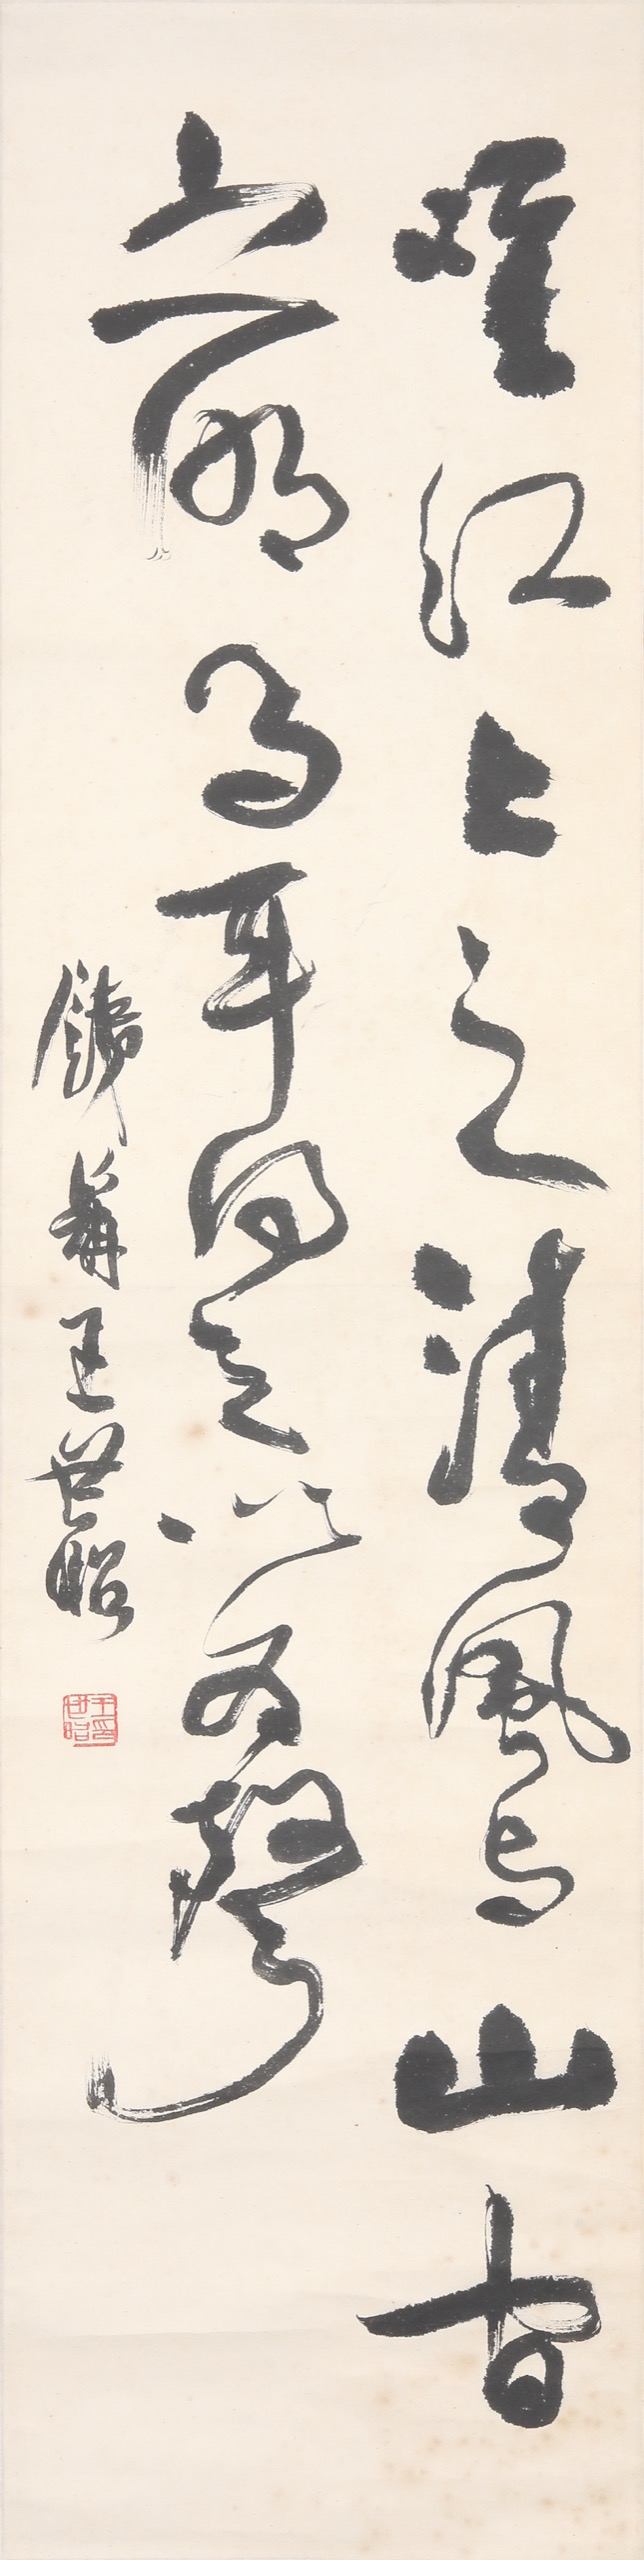 唯江上之清風与山間
之明月耳得之以為聲
鐵髯王世昭
王世昭印